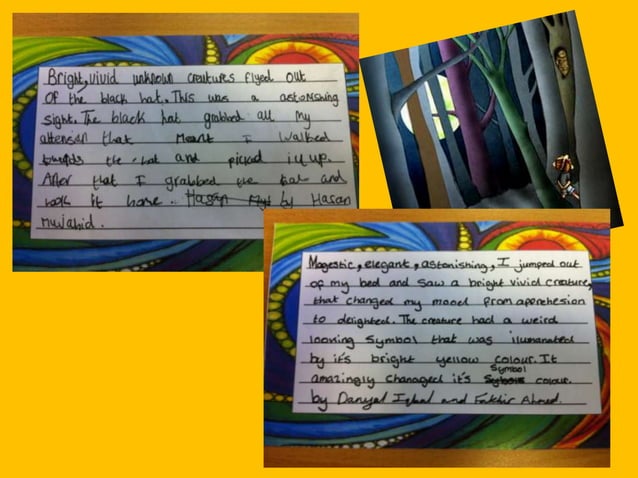 Bright, vivid unknown creatures flyed out
of the black hat. This was a astonishing
sight. The black hat grabbed all my
attension that meant I walked
towards the hat and picked it up.
After that I grabbed the hat and
took it home. Hasan by Hasan
mujahid.
Magestic, elegant, astonishing, I jumped out
of my bed and saw a bright vivid creature,
that changed my mood from apprehesion
to delighted. The creature had a weird
looking symbol that was illumanated
by it's bright yellow colour. It
amazingly chanaged it's symbol colour.
by Danyal Iqbal and Fakhir Ahmed.